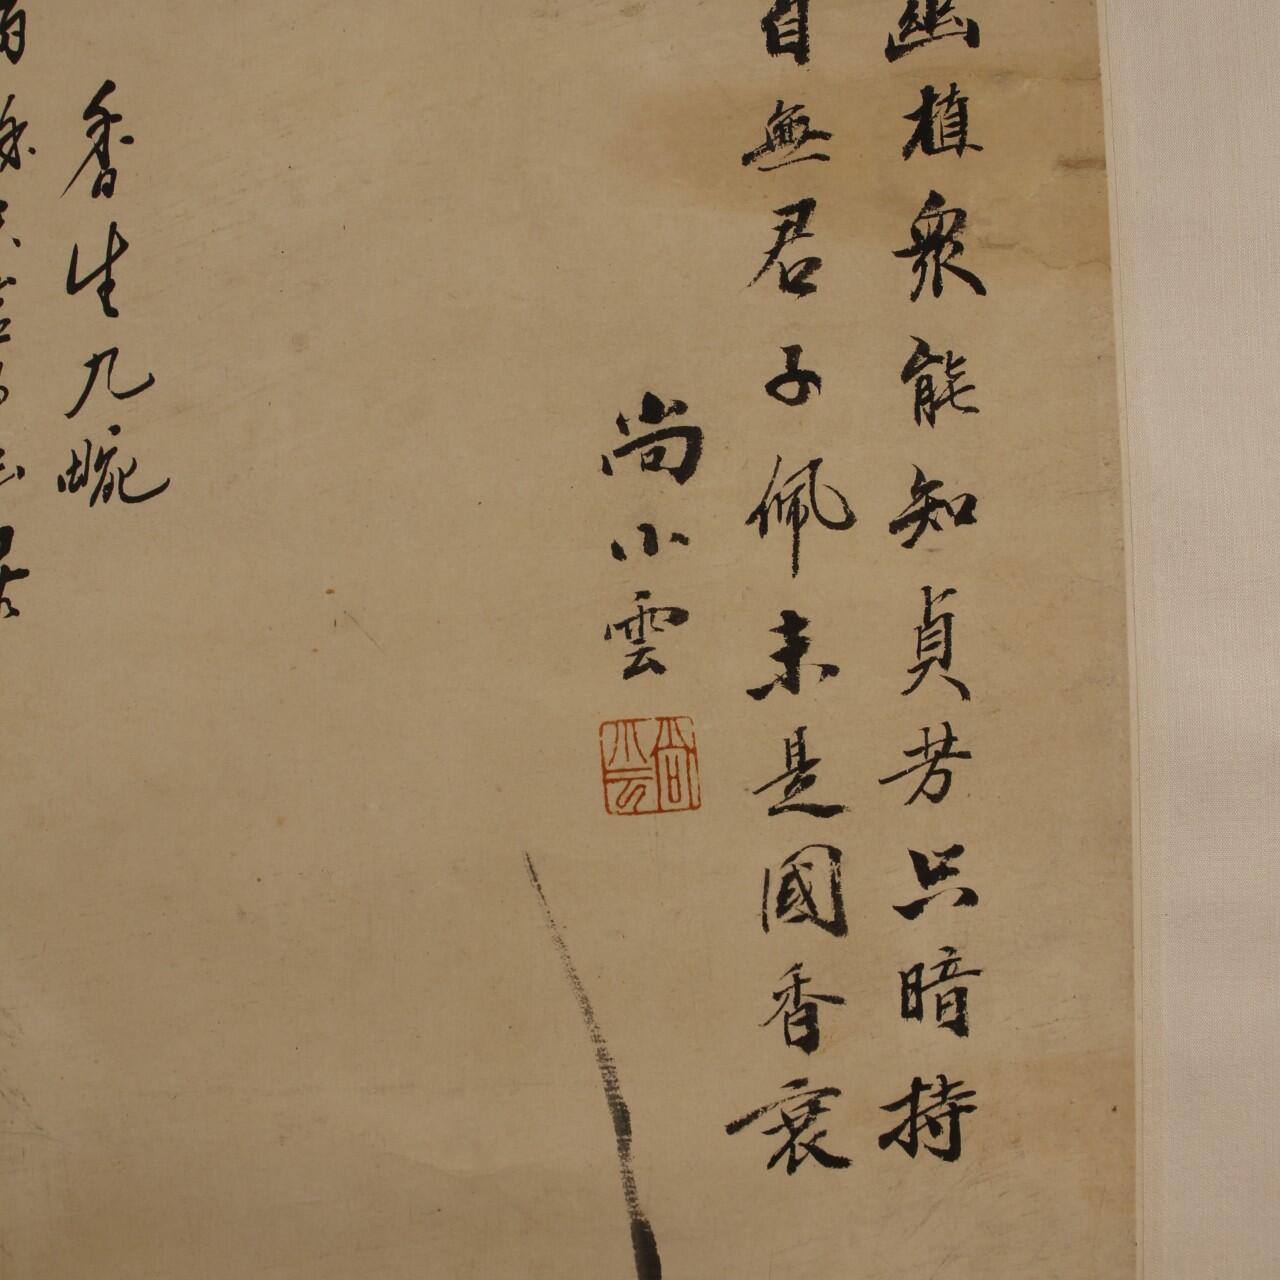 幽植衆能知貞芳只暗持
自無君子佩未是國香衰
尚小雲
尚小雲
香生九畹